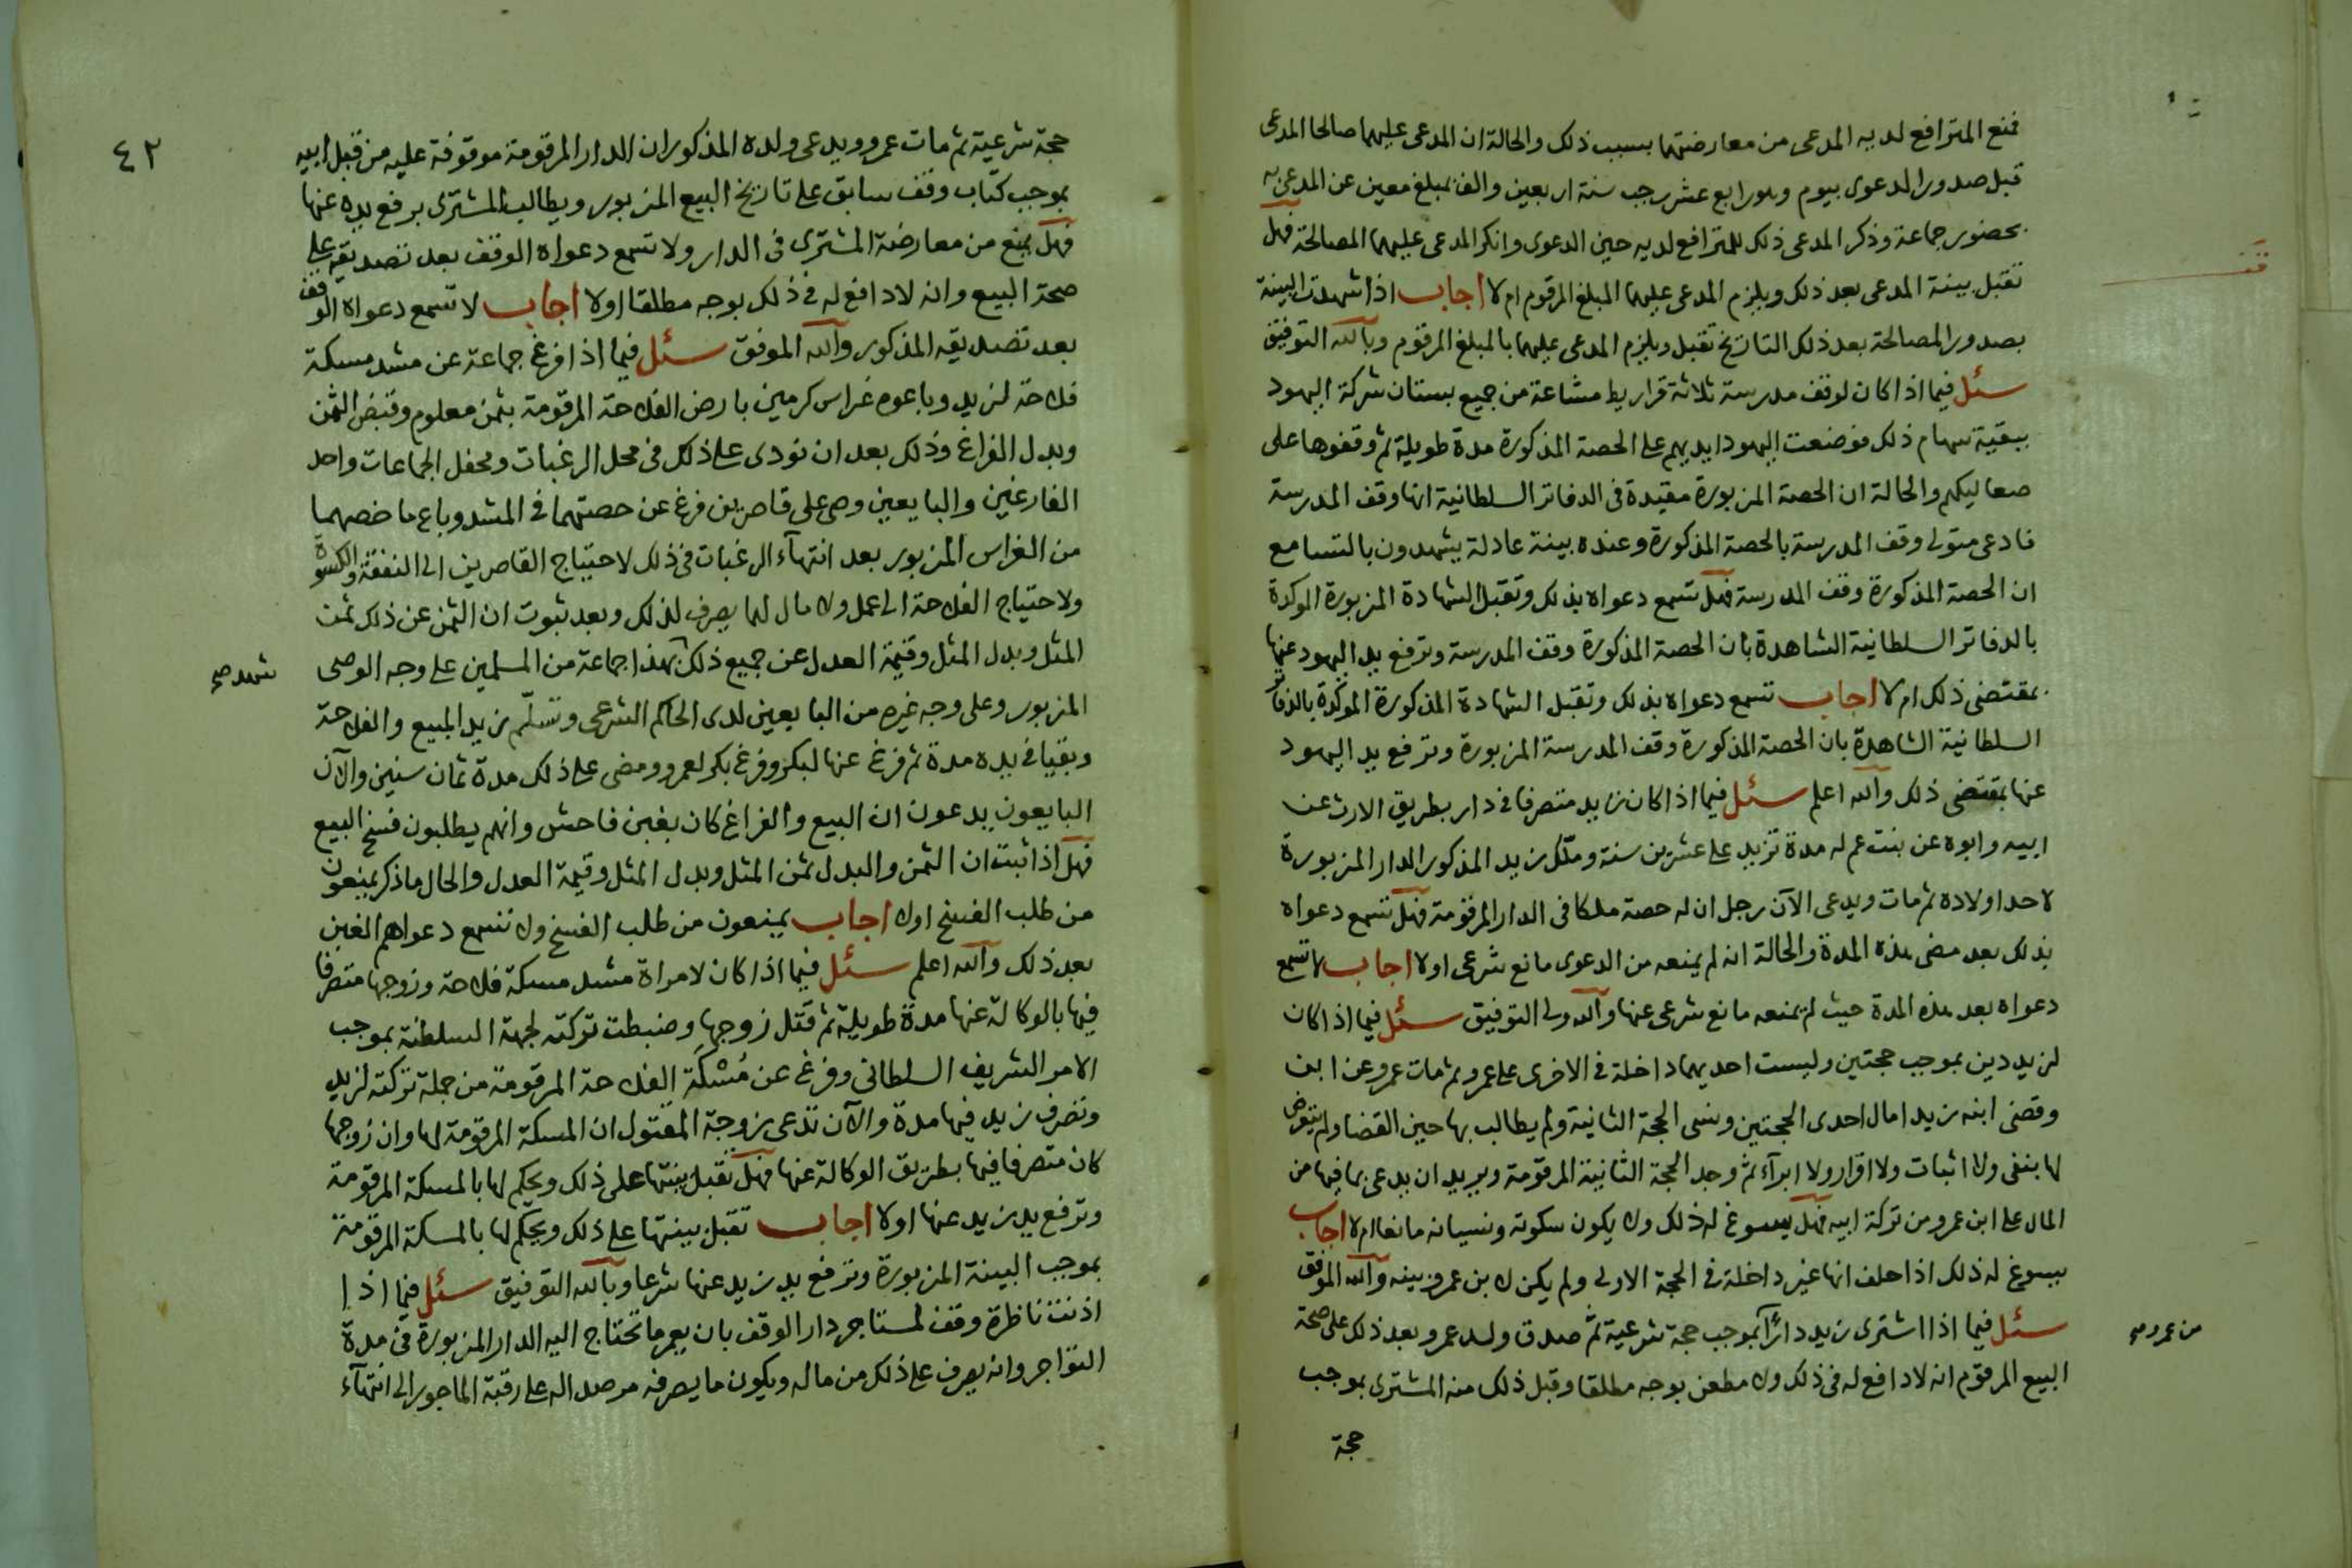 فمنع المترافع لديه المدعى من معارضتهما بسبب ذلك والحالة ان المدعى عليهما صالحا المدعى
قبل صدور الدعوى بيوم وهو رابع عشر رجب سنة اربعين والف بمبلغ معين عن المدعى به
بحضور جماعة وذكر المدعى ذلك للمترافع لديه حين الدعوى وانكر المدعى عليهما المصالحة فهل
تقبل بينة المدعى بعد ذلك ويلزم المدعى عليهما المبلغ المرقوم ام لا اجاب اذا شهدت البينة
قف
بصدور المصالحة بعد ذلك التاريخ تقبل ويلزم المدعى عليهما بالمبلغ المرقوم وبالله التوفيق
سئل فيما اذا كان لوقف مدرسة ثلاثة قراريط مشاعة من جميع بستان شركة اليهود
ببقية سهام ذلك فوضعت اليهود ايديهم على الحصة المذكورة مدة طويلة ثم وقفوها على
صعاليكهم والحالة ان الحصة المزبورة مقيدة فى الدفاتر السلطانية انها وقف المدرسة
فادعى متولى وقف المدرسة بالحصة المذكورة وعنده بينة عادلة يشهدون بالتسامع
ان الحصة المذكورة وقف المدرسة فهل تسمع دعواه بذلك وتقبل الشهادة المزبورة الموكدة
بالدفاتر السلطانية الشاهدة بان الحصة المذكورة وقف المدرسة وترفع يد اليهود عنها
بمقتضى ذلك ام لا اجاب تسمع دعواه بذلك وتقبل الشهادة المذكورة الموكدة بالدفاتر
السلطانية الشاهدة بان الحصة المذكورة وقف المدرسة المزبورة وترفع يد اليهود
عنها بمقتضى ذلك والله اعلم سئل فيما اذا كان زيد متصرفا فى دار بطريق الارث عن
ابيه وابوه عن بنت عم له مدة تزيد على عشرين سنة وملّك زيد المذكور الدار المزبورة
لاحد اولاده ثم مات ويدعى الآن رجل ان له حصة ملكا فى الدار المرقومة فهل تسمع دعواه
بذلك بعد مضى هذه المدة والحالة انه لم يمنعه من الدعوى مانع شرعى اولا اجاب لا تسمع
دعواه بعد هذه المدة حيث لم يمنعه مانع شرعى عنها والله ولى التوفيق سئل فيما اذا كان
لزيد دين بموجب حجتين وليست احديهما داخلة فى الاخرى على عمرو ثم مات عمرو عن ابن
وقضى ابنه زيدا مال احدى الحجتين ونسى الحجة الثانية ولم يطالب بها حين القضا ولم يتعرض
لها بنفى ولا اثبات ولا اقرار ولا ابرآء ثم وجد الحجة الثانية المرقومة ويريد ان يدعى بما فيها من
المال على ابن عمرو من تركة ابيه فهل يسوغ له ذلك ولا يكون سكوته ونسيانه مانعا ام لا اجاب
يسوغ له ذلك اذا حلف انها غير داخلة فى الحجة الاولى ولم يكن لابن عمرو بينة والله الموفق
سئل فيما اذا اشترى زيد دارًا بموجب حجة شرعية ثم صدق ولد عمرو بعد ذلك على صحة
من عمرو صح
البيع المرقوم انه لا دافع له فى ذلك ولا مطعن بوجه مطلقا وقبل ذلك منه المشترى بموجب
حجة
٤٢
حجة شرعية ثم مات عمرو ويدعى ولده المذكور ان الدار المرقومة موقوفة عليه من قبل ابيه
بموجب كتاب وقف سابق على تاريخ البيع المزبور ويطالب المشترى برفع يده عنها
فهل يمنع من معارضة المشترى فى الدار ولا تسمع دعواه الوقف بعد تصديقه على
صحة البيع وانه لا دافع له فى ذلك بوجه مطلقا اولا اجاب لا تسمع دعواه الوقف
بعد تصديقه المذكور والله الموفق سئل فيما اذا فرغ جماعة عن مشد مسكة
فلاحة لزيد وباعوه غراس كرمين بارض الفلاحة المرقومة بثمن معلوم وقبض الثمن
وبدل الفراغ وذلك بعد ان نودى على ذلك فى محل الرغبات ومحفل الجماعات واحد
الفارغين والبايعين وصى على قاصرين فرغ عن حصتهما فى المشد وباع ما خصهما
من الغراس المزبور بعد انتهآء الرغبات فى ذلك لاحتياج القاصرين الى النفقة والكسوة
ولاحتياج الفلاحة الى عمل ولا مال لهما يصرف لذلك وبعد ثبوت ان الثمن عن ذلك ثمن
المثل وبدل المثل وقيمة العدل عن جميع ذلك بهذا جماعة من المسلمين على وجه الوصى
شهد صح
المزبور وعلى وجه غيره من البايعين لدى الحاكم الشرعى وتسلّم زيد المبيع والفلاحة
وبقيا فى يده مدة ثم فرغ عنها لبكر وفرغ بكر لعمرو ومضى على ذلك مدة ثمان سنين والآن
البايعون يدعون ان البيع والفراغ كان بغبن فاحش وانهم يطلبون فسخ البيع
فهل اذا ثبت ان الثمن والبدل ثمن المثل وبدل المثل وقيمة العدل والحال ما ذكر يمنعون
من طلب الفسخ اولا اجاب يمنعون من طلب الفسخ ولا تسمع دعواهم الغبن
بعد ذلك والله اعلم سئل فيما اذا كان لامراة مشد مسكة فلاحة وزوجها متصرفا
فيها بالوكالة عنها مدة طويلة ثم قتل زوجها وضبطت تركته لجهة السلطنة بموجب
الامر الشريف السلطانى وفرغ عن مُسْكَة الفلاحة المرقومة من جملة تركته لزيد
وتصرف زيد فيها مدة والآن تدعى زوجة المقتول ان المسكة المرقومة لها وان زوجها
كان متصرفا فيها بطريق الوكالة عنها فهل تقبل بينتها على ذلك ويحكم لها بالمسكة المرقومة
وترفع يد زيد عنها اولا اجاب تقبل بينتها على ذلك ويحكم لها بالمسكة المرقومة
بموجب البينة المزبورة وترفع يد زيد عنها شرعا وبالله التوفيق سئل فيما اذا
اذنت ناظرة وقف لمستاجر دار الوقف بان يعمر ما تحتاج اليه الدار المزبورة فى مدة
التواجر وانه يصرف على ذلك من ماله ويكون ما يصرفه مرصدا له على رقبة الماجور الى انتهآء